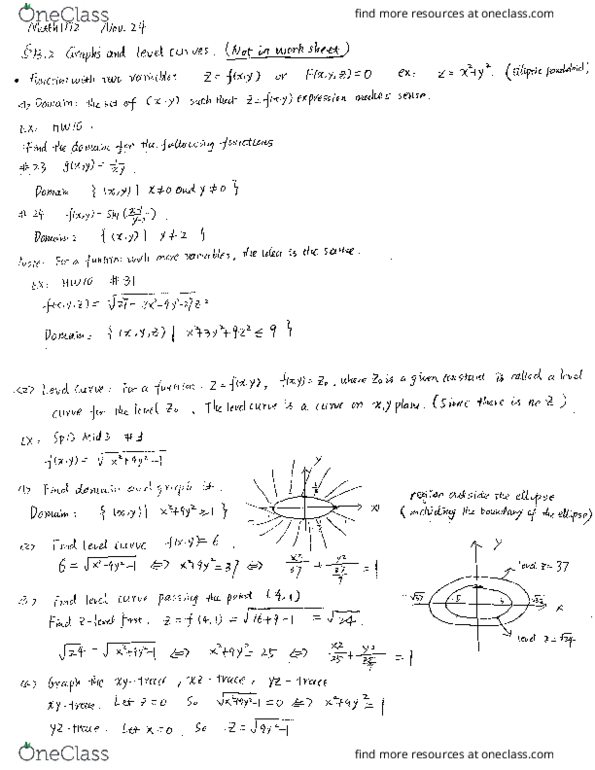 OneClass
find more resources at oneclass.com
Math1172 Nov. 24
§13.2 Graphs and level curves. (Not in work sheet)
• Function with two variables z = f(x,y) or F(x,y,z)=0 ex: z = x²+y². (Elliptic paraboloid)
<1> Domain: the set of (x,y) such that z=f(x,y) expression makes sense.
EX: HW10.
Find the domain for the following functions
#23 g(x,y) = 1/xy
Domain { (x,y) | x≠0 and y≠0 }
# 24 f(x,y) = Sin( )
Domain: { (x,y) | y≠ }
Note: For a function with more variables, the idea is the same.
EX: HW10 #31
f(x,y,z) =
Domain: { (x,y,z) | x²+3y²+9z² ≤ 9 }
<2> Level Curve: For a function z=f(x,y), f(x,y)=z₀, where z₀ is a given constant is called a level
curve for the level z₀. The level curve is a curve on x,y plane. (Since there is no z)
EX: Mid3 #3
f(x,y) = √x²+9y²-1
<1> Find domain and graph it.
Domain: { (x,y) | x²+9y²≥1 }
y
x
region outside the ellipse
(including the boundary of the ellipse)
<2> Find level curve f(x,y)=6
6=√x²+9y²-1 ⟺ x²+9y²=37 ⟺ x²/37 + y²/(37/9) = 1
Y
level z=37
√37
x
level z=√24
<3> Find level curve passing the point (4,1)
Find z-level first. z=f(4,1)=√16+9-1 = √24
√24 = √x²+9y²-1 ⟺ x²+9y²=25 ⟺ x²/25 + y²/(25/9) = 1
Graph the xy-trace, xz-trace, yz-trace
xy-trace. Let z=0 So √x²+9y²-1=0 ⟺ x²+9y²=1
yz-trace. Let x=0. So z=√9y²-1
OneClass
find more resources at oneclass.com